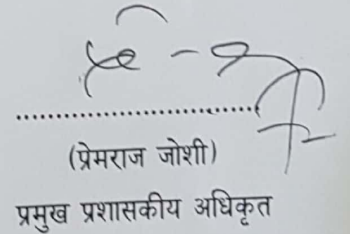 ....................................
(प्रेमराज जोशी)
प्रमुख प्रशासकीय अधिकृत